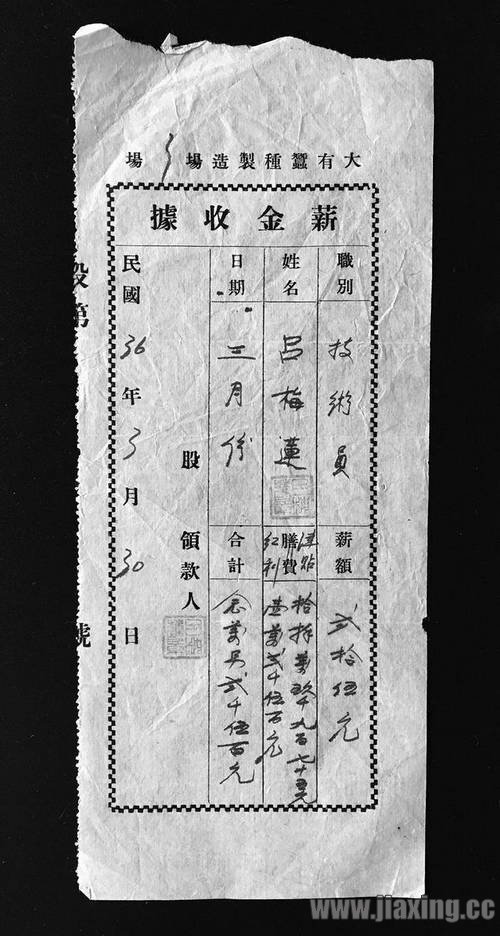 大有蠶種製造場 3 場
薪金收據
職別 技術員 薪額 弍拾伍元
姓名 呂梅蓮 膳費 津貼 拾捌萬玖千九百七十五元
紅利 壹萬弍千伍百元
日期 三月份 合計 念萬另弍千伍百元
股 領款人
民國 36 年 3 月 30 日
第 號
www.jiaxing.cc